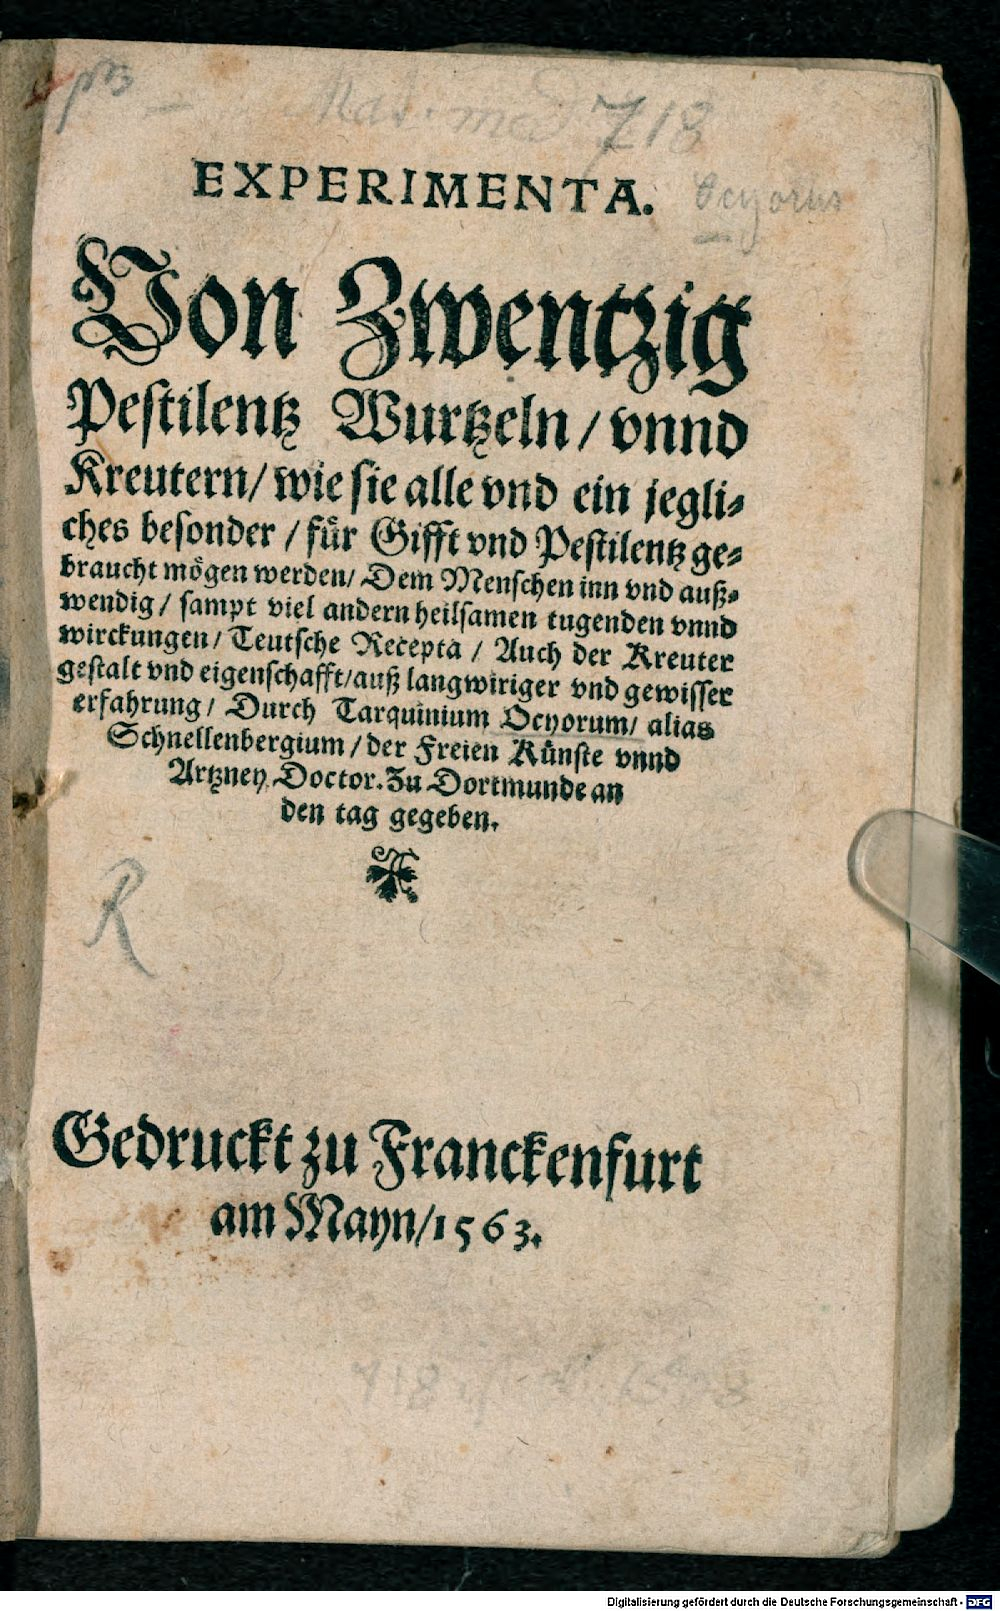 Mat. med. 718
EXPERIMENTA.
Ocyorus
Von Zwentzig
Pestilentz Wurtzeln / vnnd
Kreutern / wie sie alle vnd ein jegli-
ches besonder / für Gifft vnd Pestilentz ge-
braucht mögen werden / Dem Menschen inn vnd auß-
wendig / sampt viel andern heilsamen tugenden vnnd
wirckungen / Teutsche Recepta / Auch der Kreuter
gestalt vnd eigenschafft / auß langwiriger vnd gewisser
erfahrung / Durch Tarquinium Ocyorum / alias
Schnellenbergium / der Freien Künste vnnd
Artzney Doctor. Zu Dortmunde an
den tag gegeben.
R
Gedruckt zu Franckenfurt
am Mayn / 1563.
Digitalisierung gefördert durch die Deutsche Forschungsgemeinschaft - DFG